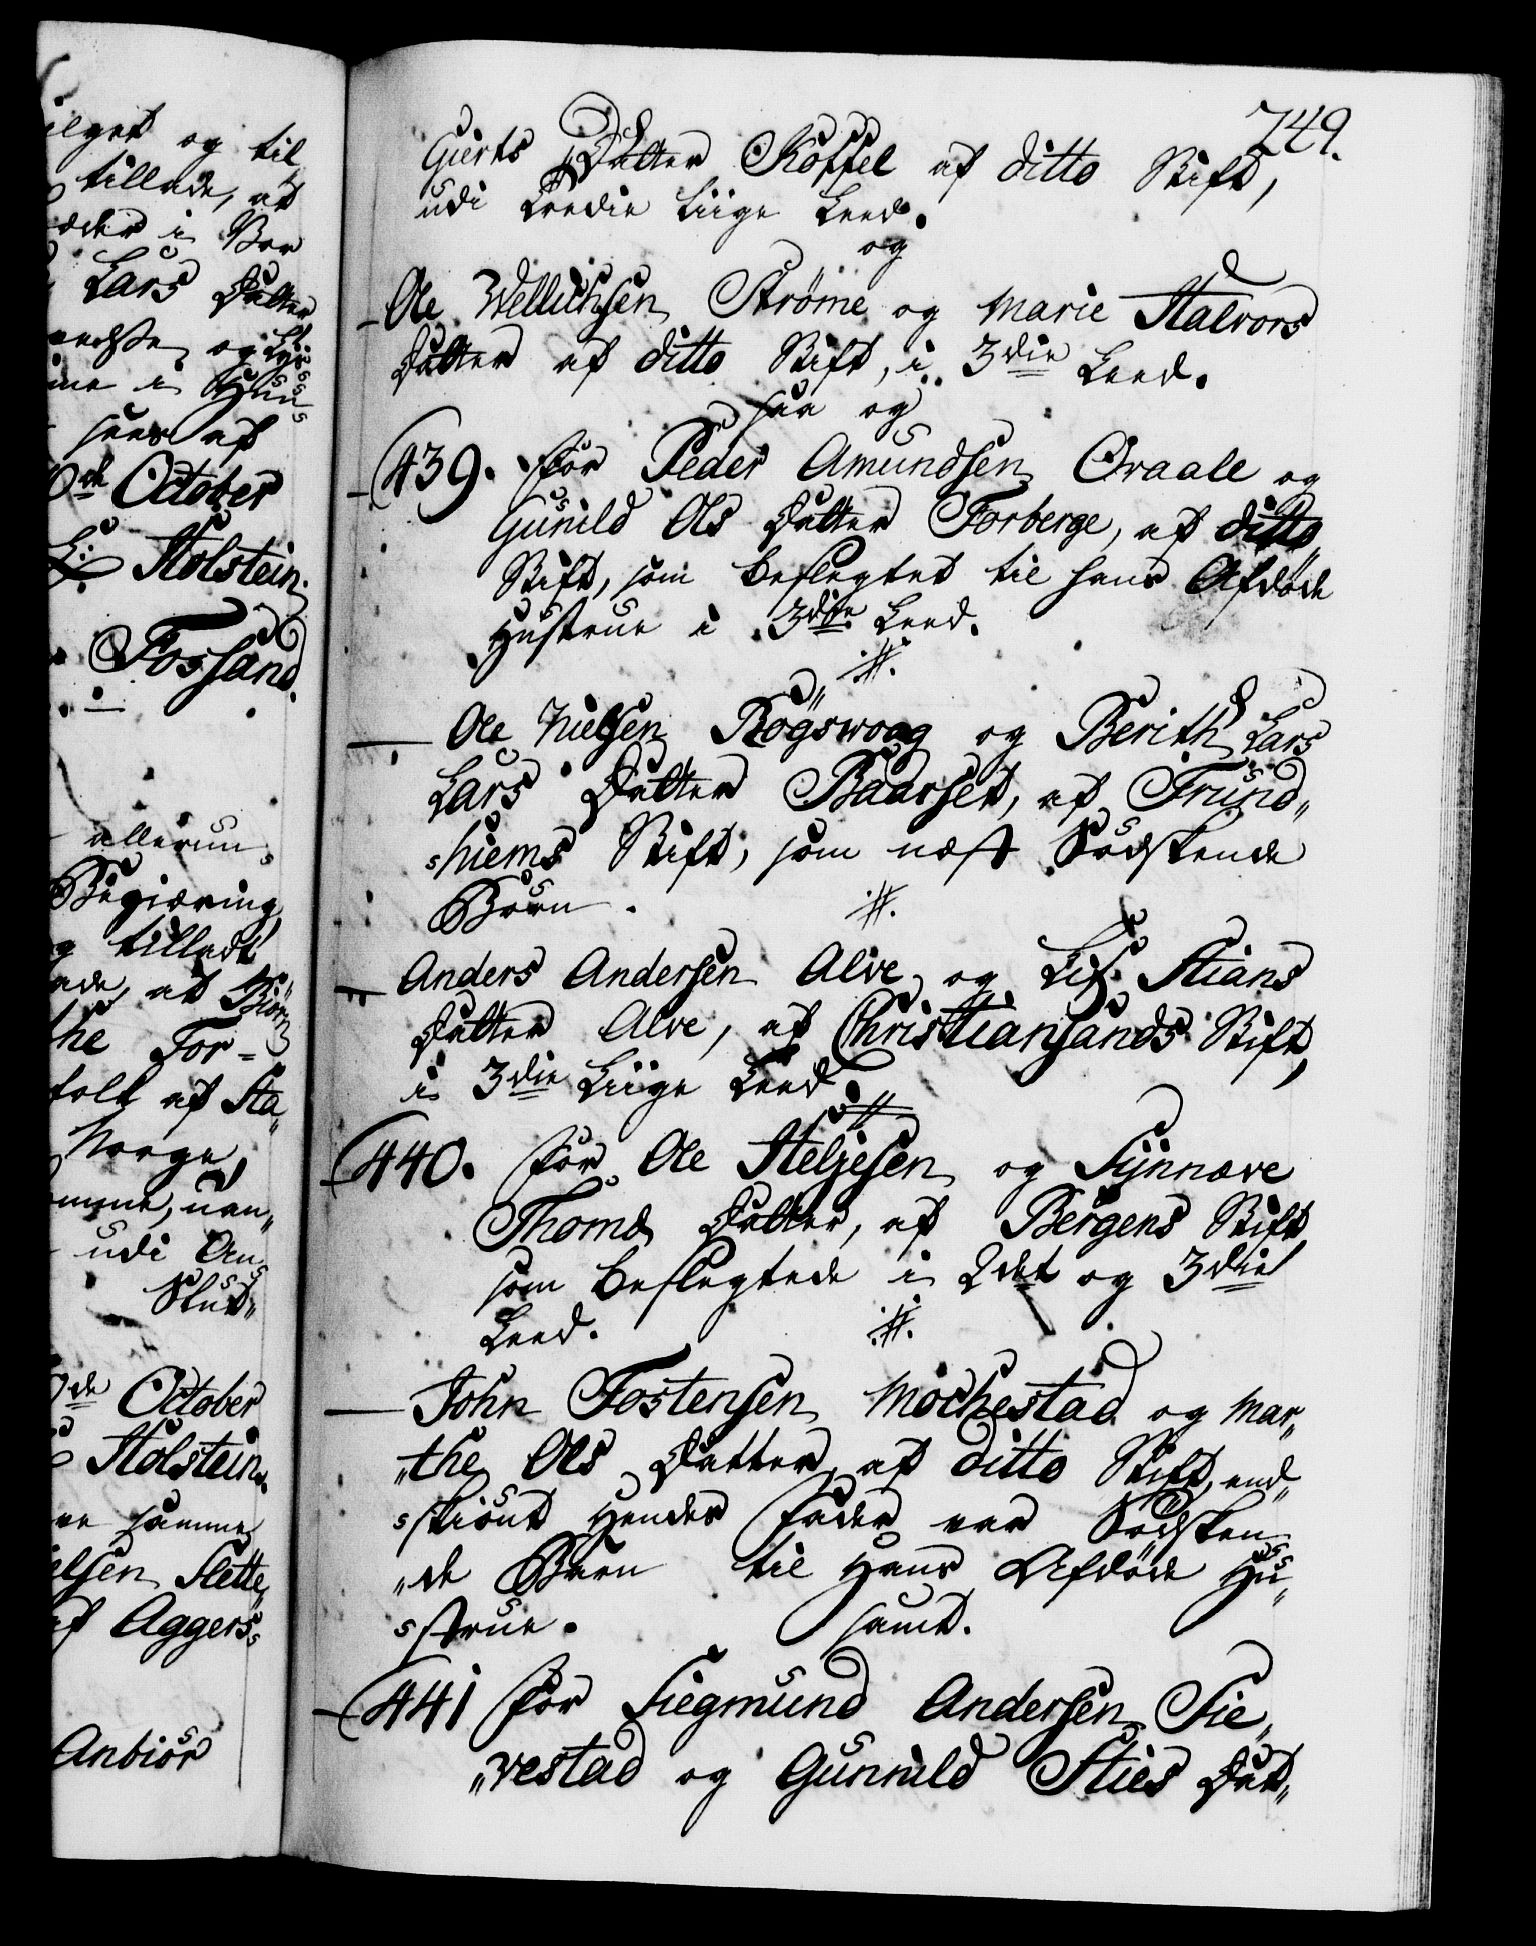 ilget og til
tillade, at
æder i Bor
Lars Datter
nedste og Lyse
me i Huu-
sees af
0de October
L: Holstein.
Fossand.
allerun-
Begiæring
g tilladt
ade, at Biørn
the For-
folk af Ha-
Norge,
omme, uan-
udi An-
Slut-
7de October
Holstein.
ve samme
elsen Slette,
af Aggers-
Anbiør
749.
Gierts Datter Koffel af ditto Stift,
udi tredie liige Leed.
og
Ole Wellichsen Strøme og Marie Halvors
Datter af ditto Stift, i 3die Leed.
saa og
439. for Peder Amundsen Qvaale og
Gunild Ols Datter Forberge, af ditto
Stift, som beslegtet til hans Afdøde
Hustrue i 3die Leed.
Ole Nielsen Bøgswoag og Berith Lars
Lars Datter Baarset, af Trund-
hiems Stift, som næst Sødskende
Børn.
Anders Andersen Alve og Lis. Stians
Datter Alve, af Christiansands Stift,
i 3die Liige Leed.
440. for Ole Heljesen og Synnæve
Thomæ Datter, af Bergens Stift
som beslegtede i 2det og 3die
Leed.
John Tostensen Mochestad og Mar-
the Ols Datter, af ditto Stift, end-
skiønt Hendes Fader var Sødsken-
de Børn til Hans Afdøde Hu-
strue. samt.
441 for Siegmund Andersen Sie-
vestad og Gunnild Sties Dat-